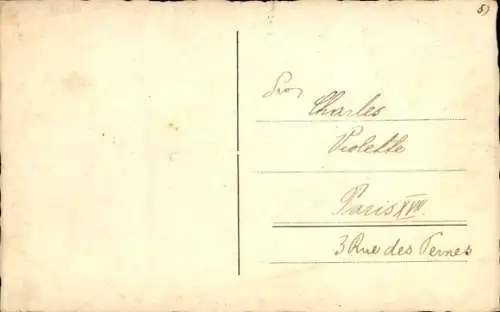 5)
Charles
Violette
Paris XVII
3 Rue des Ternes